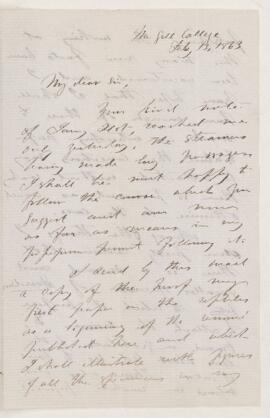 McGill College
Feby 13, 1863
My dear Sir,
Your kind note
of Jany 21st, reached me
only yesterday, the steamers
having made long passages
I shall be most happy to
follow the course which you
suggest and am
as far as means in my
permit following it.
I send by this mail
a copy of the proof my
first paper on the reptiles
as a beginning of the
published here and which
I shall illustrate with figures
of all the specimens in my